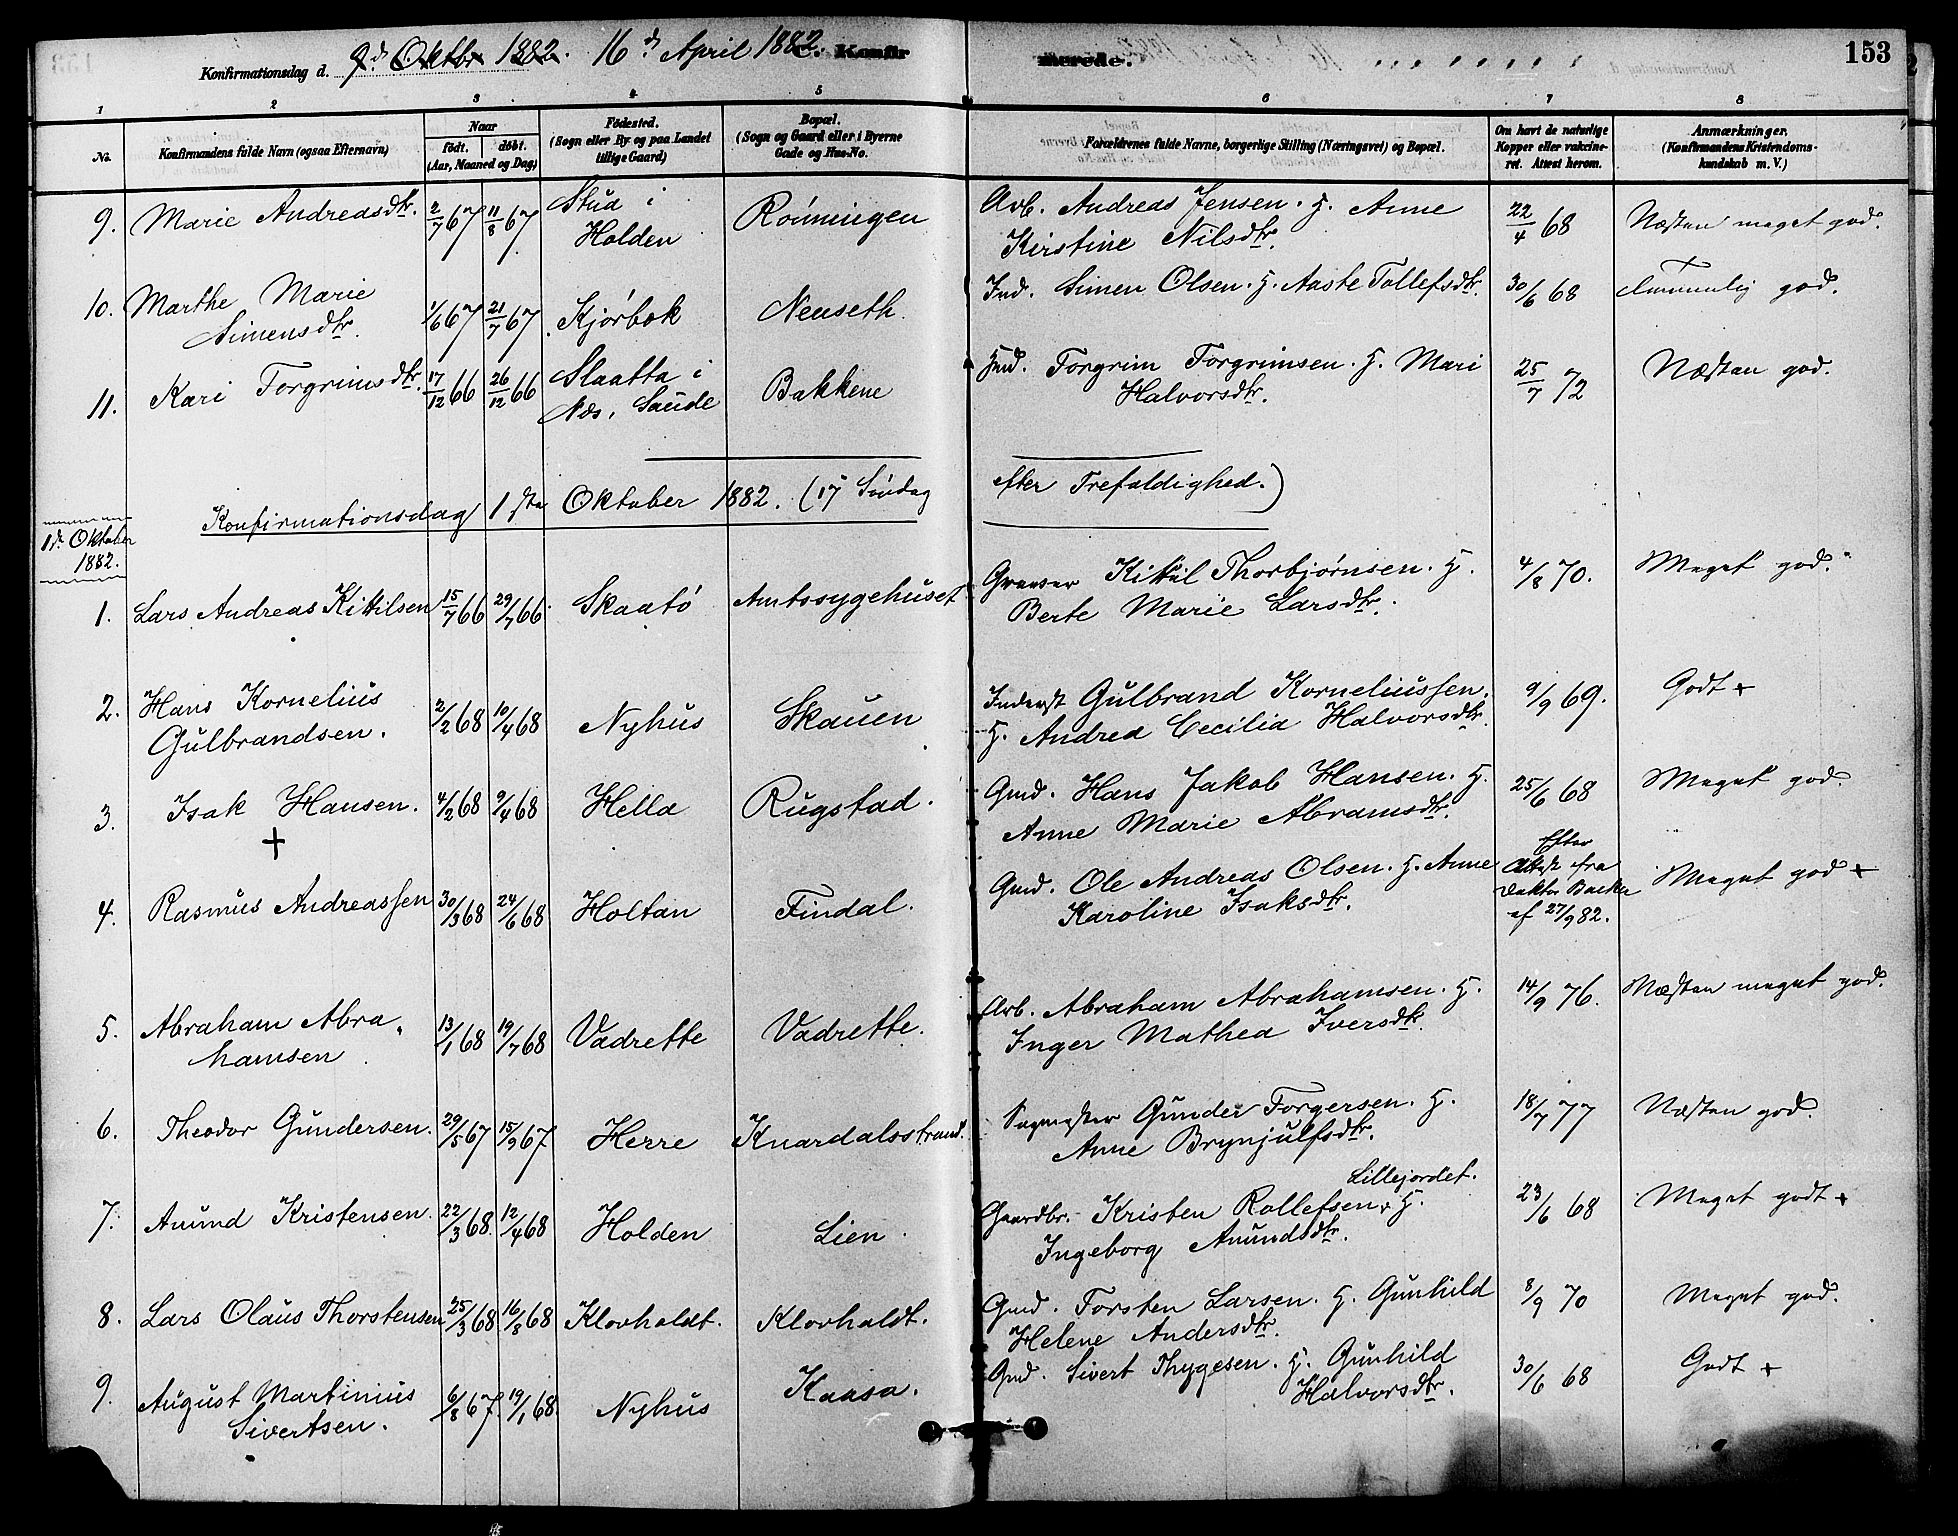 Konfirmationsdag d. 9d Oktbr 1882. 16d April 1882. C. Konfirmerede. 153
1 2 3 4 5 6 7 8
No. Konfirmandens fulde Navn (ogsaa Efternavn) Naar født. døbt. (Aar, Maaned og Dag) Fødested. (Sogn eller By og paa Landet tillige Gaard) Bopæl. (Sogn og Gaard eller i Byerne Gade og Hus-No. Forældrenes fulde Navne, borgerlige Stilling (Næringsvei) og Bopæl. Om havt de naturlige Kopper eller vakcineret. Attest herom. Anmærkninger. (Konfirmandens Kristendomskundskab m. V.)
9. Marie Andreasdtr. 2/7 67 11/8 67 Stua i Holden Rönningen Arb. Andreas Jensen. H. Anne
Kirstine Nilsdtr. 22/4 68 Næsten meget god.
10. Marthe Marie
Simensdtr. 1/6 67 21/7 67 Kjørbæk Neuseth. Ind. Simen Olsen. H. Aaste Tollefsdtr. 30/6 68 Temmelig god.
11. Kari Torgrimsdtr. 17/12 66 26/12 66 Slaatta i
Næs, Saude Bakkene Hmd. Torgrim Torgrimsen. H. Mari
Halvorsdtr. 25/7 72 Næsten god.
Konfirmationsdag 1ste Oktober 1882. (17 Søndag efter Trefoldighed.)
1d. Oktober
1882.
1. Lars Andreas Kittilsen 15/7 66 29/7 66. Skaatø Amtssygehuset Graver Kittil Thorbjørnsen. H.
Berte Marie Larsdtr. 4/8 70. Meget god.
2. Hans Kornelius
Gulbrandsen. 2/2 68 10/4 68 Nyhus Skauen Inderst Gulbrand Korneliussen.
H. Andrea Cecilia Halvorsdtr. 9/9 69. Godt +
3. Isak Hansen. + 4/2 68 9/4 68 Hella Rugstad. Gmd. Hans Jakob Hansen. H.
Anne Marie Abramsdtr. 25/6 68 Meget god
4. Rasmus Andreassen 30/3 68 24/6 68 Holtan Findal. Gmd. Ole Andreas Olsen. H. Anne
Karoline Isaksdtr. Efter
Attest fra
Doktor
af 27/9 82. Meget god +
5. Abraham Abra-
hamsen. 13/1 68 19/7 68 Vadrette Vadrette. Arb. Abraham Abrahamsen. H.
Inger Mathea Iversdtr. 14/9 76. Næsten meget god.
6. Theodor Gundersen. 29/5 67 15/9 67 Herre Knardalsstrand. Sagmester Gunder Torgersen. H.
Anne Brynjulfsdtr. 18/7 77 Næsten god.
7. Anund Kristensen. 22/3 68. 12/4 68 Holden Lien. Lillejordet.
Gaardbr. Kristen Rollefsen. H.
Ingeborg Anundsdtr. 23/6 68 Meget godt +
8. Lars Olaus Thorstensen 25/3 68. 16/8 68 Klovholdt. Klovholdt. Gmd. Torsten Larsen. H. Gunhild
Helene Andersdtr. 8/9 70 Meget god.
9. August Martinius
Sivertsen. 6/8 67. 19/1 68. Nyhus Kaasa. Gmd. Sivert Thygesen. H. Gunhild
Halvorsdtr. 30/6 68 Godt +